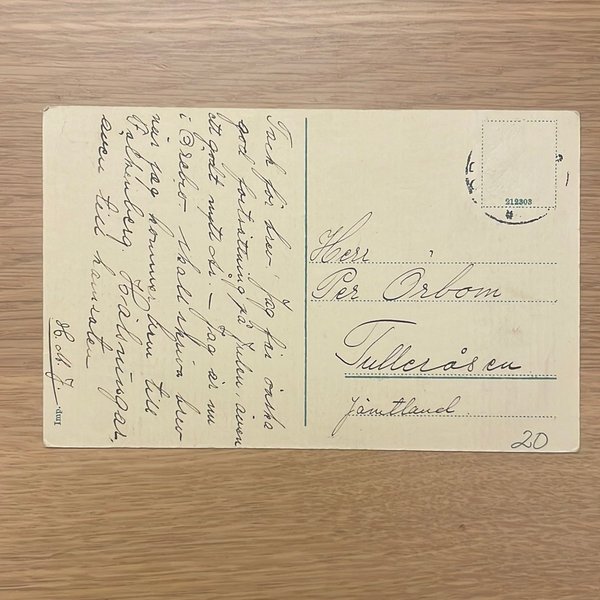 Tack för brev. Jag får önska
god fortsättning på Julen, även
ett godt nytt år. — Jag är nu
i Örebro skall skriva brev
när jag kommer hem till
Falkenberg. Hälsningar,
även till kamraten
H. A. J.
Imp.
212303
Herr
Per Orbom
Tulleråsen
Jämtland.
20